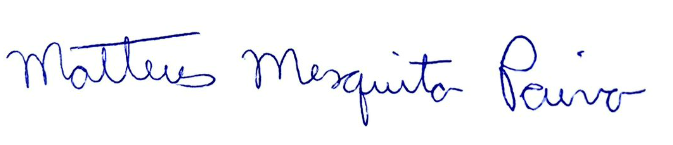 Matteus Mesquita Paiva